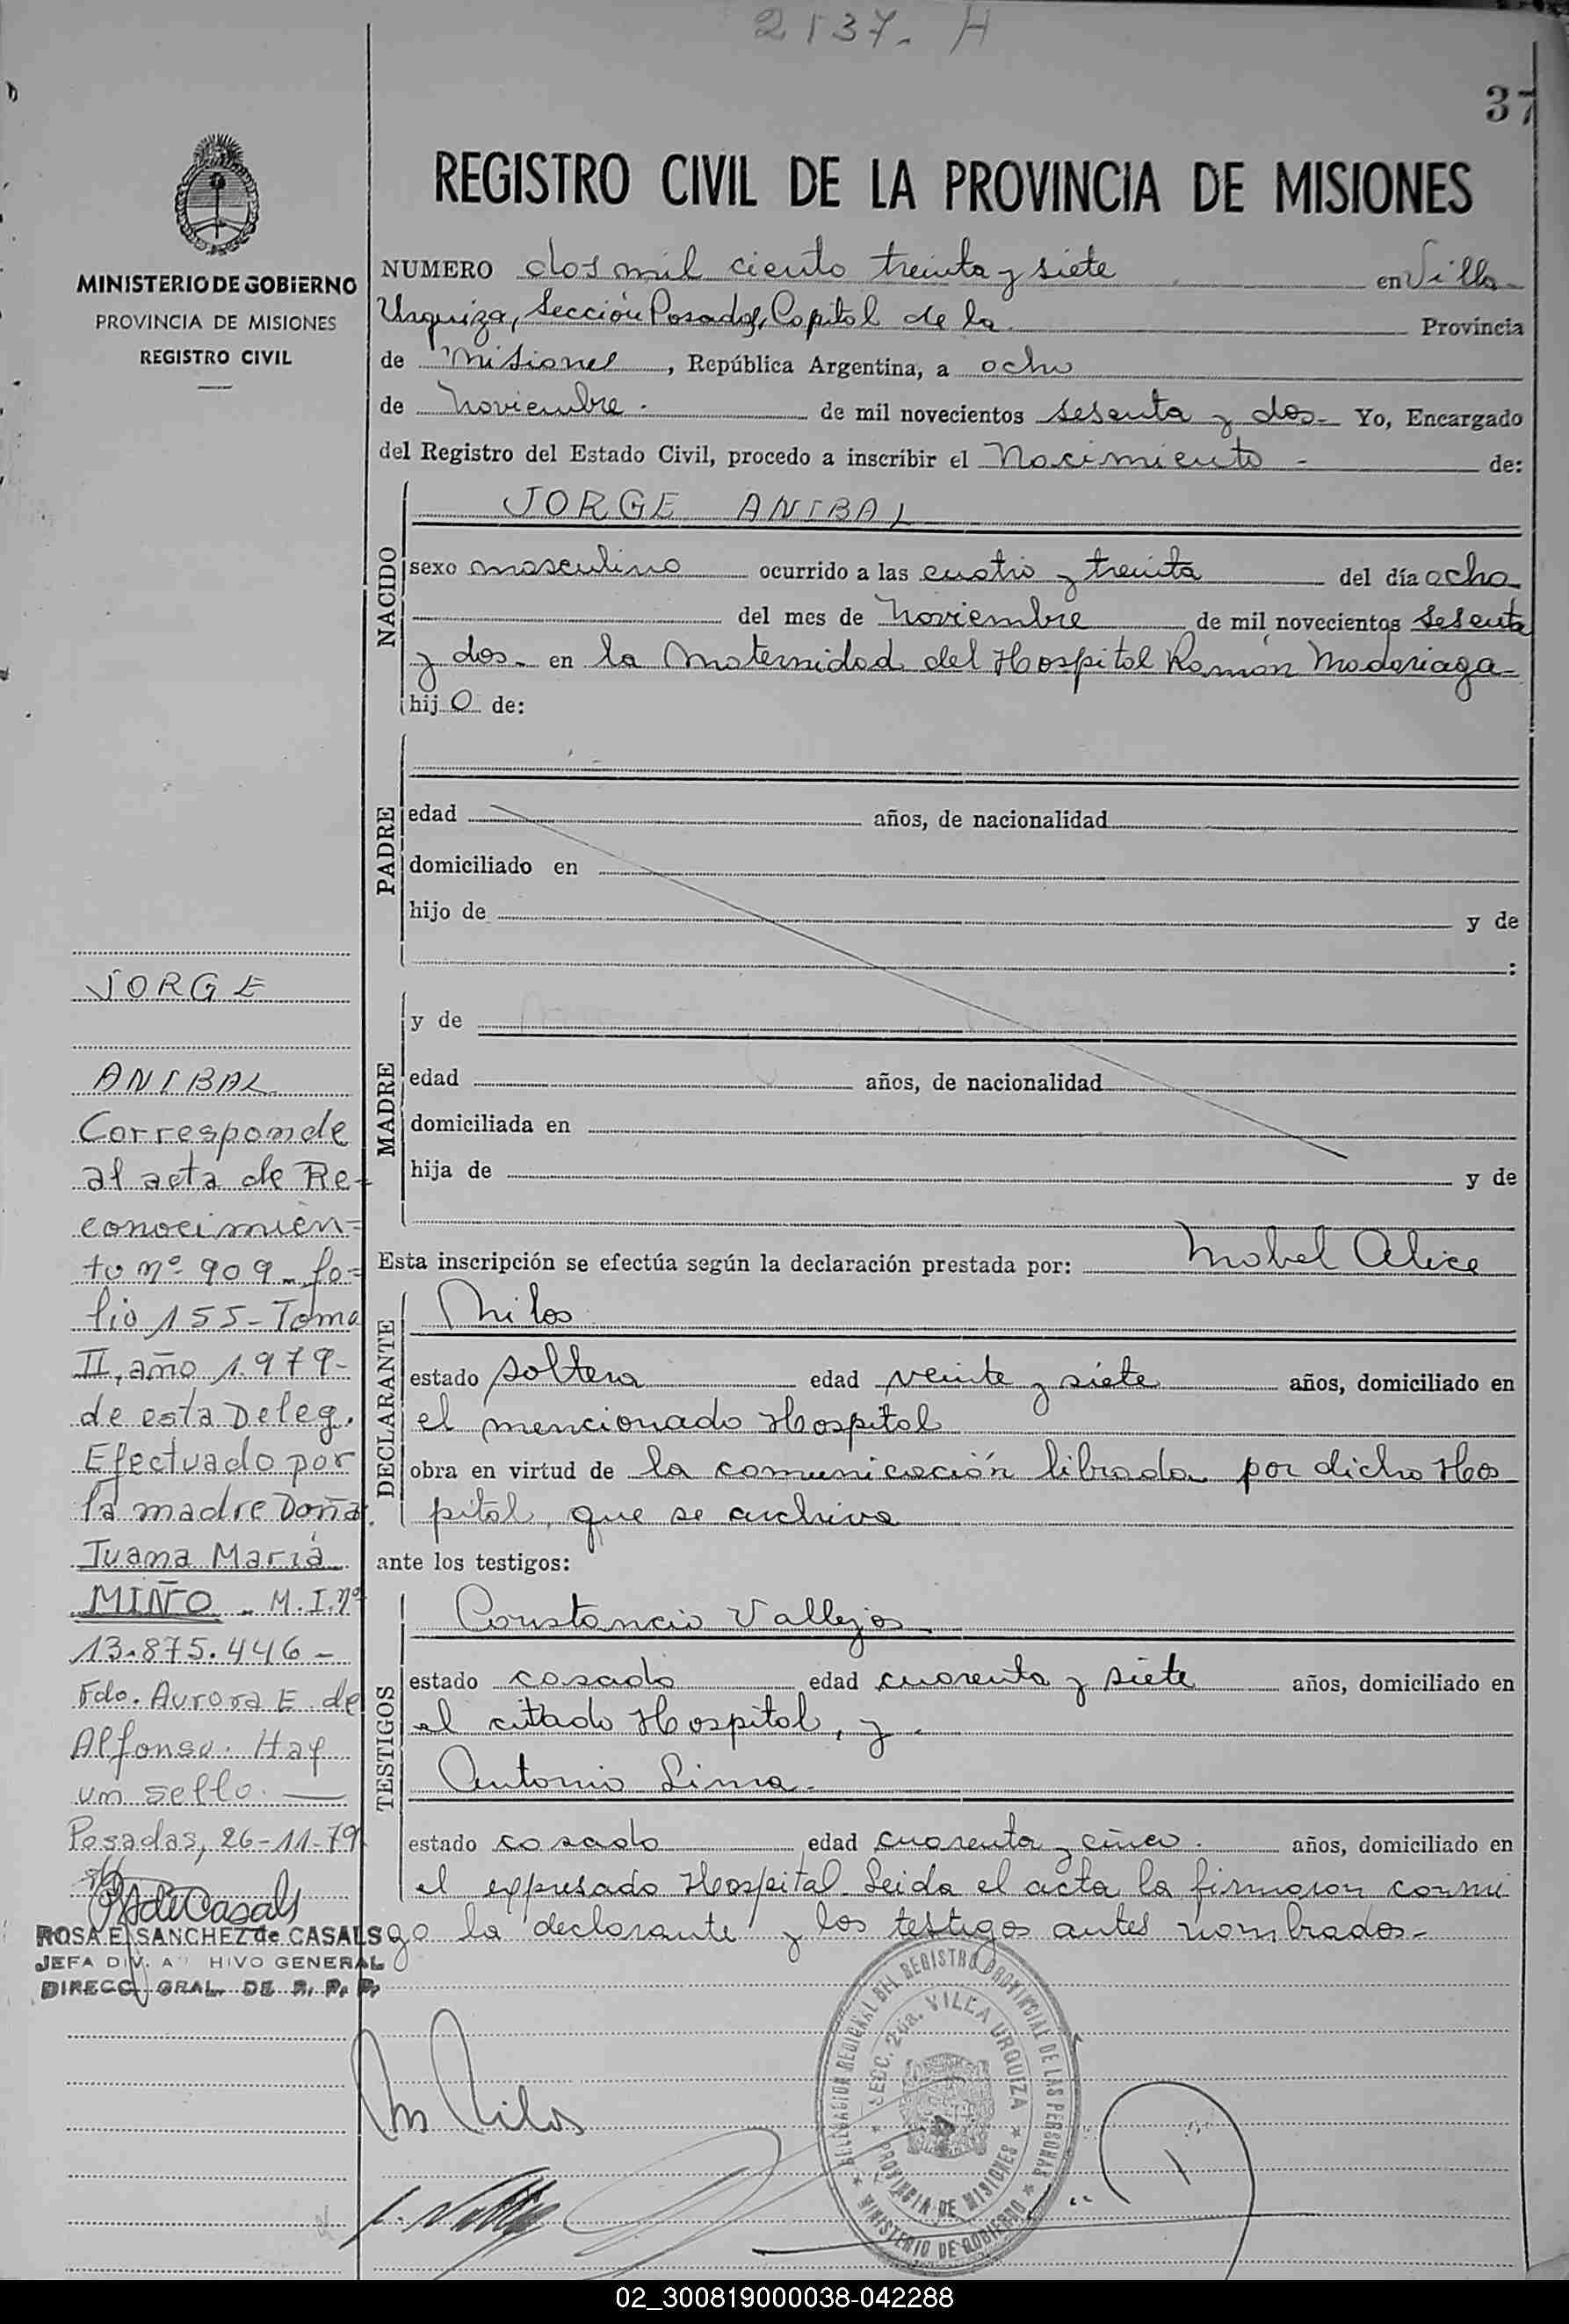 2137. H
37
REGISTRO CIVIL DE LA PROVINCIA DE MISIONES
MINISTERIO DE GOBIERNO
PROVINCIA DE MISIONES
REGISTRO CIVIL
NUMERO dos mil ciento treinta y siete en Villa
Urquiza, Sección Posadas, Capital de la Provincia
de Misiones, República Argentina, a ocho
de Noviembre. de mil novecientos sesenta y dos- Yo, Encargado
del Registro del Estado Civil, procedo a inscribir el Nacimiento - de:
NACIDO
JORGE ANIBAL
sexo masculino ocurrido a las cuatro y treinta del día ocho
del mes de Noviembre de mil novecientos sesenta
y dos- en la Maternidad del Hospital Ramón Madariaga-
hijo de:
PADRE
edad años, de nacionalidad
domiciliado en
hijo de y de
:
MADRE
y de
edad años, de nacionalidad
domiciliada en
hija de y de
Esta inscripción se efectúa según la declaración prestada por: Mabel Alice
DECLARANTE
Milos
estado soltera edad veinte y siete años, domiciliado en
el mencionado Hospital
obra en virtud de la comunicación librada por dicho Hos
pital, que se archiva
ante los testigos:
TESTIGOS
Constancio Vallejos
estado casado edad cuarenta y siete años, domiciliado en
el citado Hospital, y.
Antonio Lima.
estado casado edad cuarenta y cinco. años, domiciliado en
el expresado Hospital. Leida el acta la firmaron conmi
go la declarante y los testigos antes nombrados.-
JORGE
ANIBAL
Corresponde
al acta de Re-
conocimien=
to nº 909 - fo=
lio 155 - Tomo
II, año 1.979-
de esta Deleg.
Efectuado por
la madre Doña
Juana María
MIÑO - M.I.nº
13.875.446 -
Fdo. Aurora E. de
Alfonso. Hay
un sello. —
Posadas, 26-11-79
ROSA E. SANCHEZ de CASALS
JEFA DIV. A HIVO GENERAL
DIRECC. GRAL. DE R. P. P.
M Milos
DELEGACION REGIONAL DEL REGISTRO PROVINCIAL DE LAS PERSONAS
SECC. 2da. VILLA URQUIZA
PROVINCIA DE MISIONES
MINISTERIO DE GOBIERNO
02_300819000038-042288